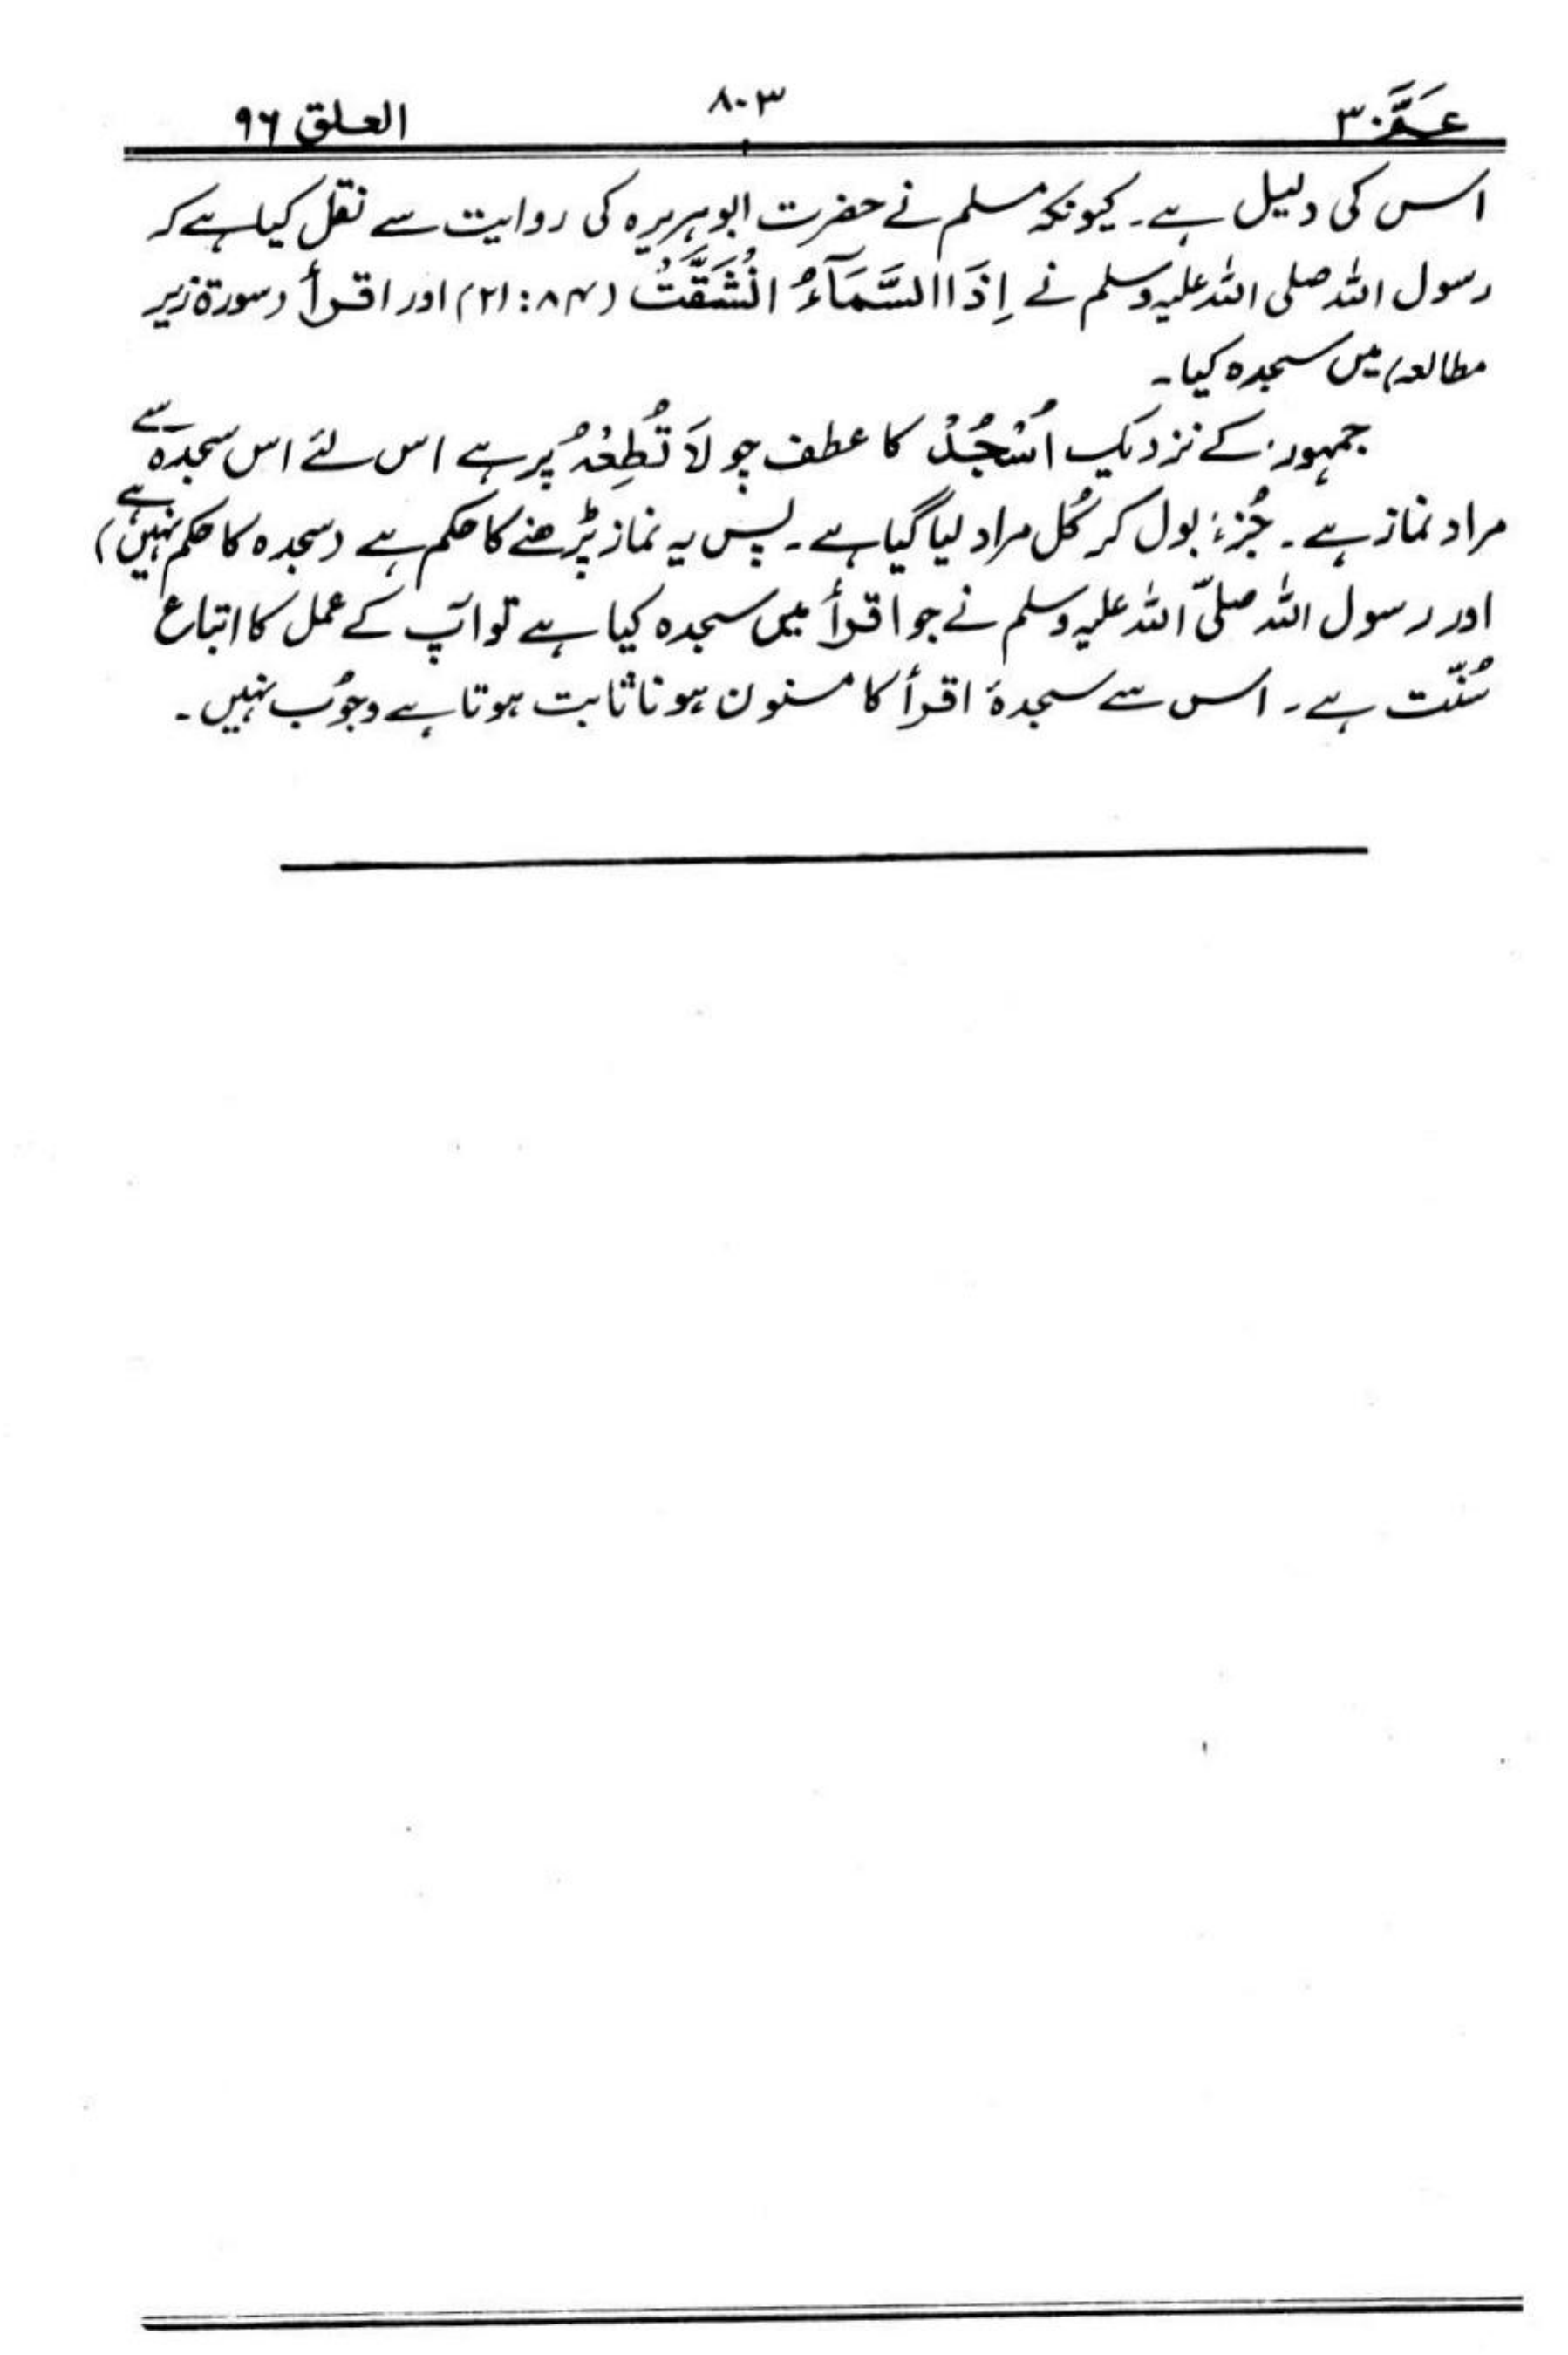 عَمَّ ۳۰ ۸۰۳ العلق ۹۶
اس کی دلیل ہے۔ کیونکہ مسلم نے حضرت ابوہریرہ کی روایت سے نقل کیا ہے کہ
رسول اللہ صلی اللہ علیہ وسلم نے اِذَا السَّمَآءُ انْشَقَّتْ (۸۴:۲۱) اور اقرأ (سورۃ زیر
مطالعہ) میں سجدہ کیا۔
جمہور کے نزدیک اُسْجُدْ کا عطف چو لَا تُطِعْہُ پر ہے اس لئے اس سجدہ سے
مراد نماز ہے۔ جُزء بول کر کُل مراد لیا گیا ہے۔ پس یہ نماز پڑھنے کا حکم ہے (سجدہ کا حکم نہیں ہے)
اور رسول اللہ صلّی اللہ علیہ وسلم نے جو اقرأ میں سجدہ کیا ہے تو آپ کے عمل کا اتباع
سُنّت ہے۔ اس سے سجدۂ اقرأ کا مسنون ہونا ثابت ہوتا ہے وجُوب نہیں۔